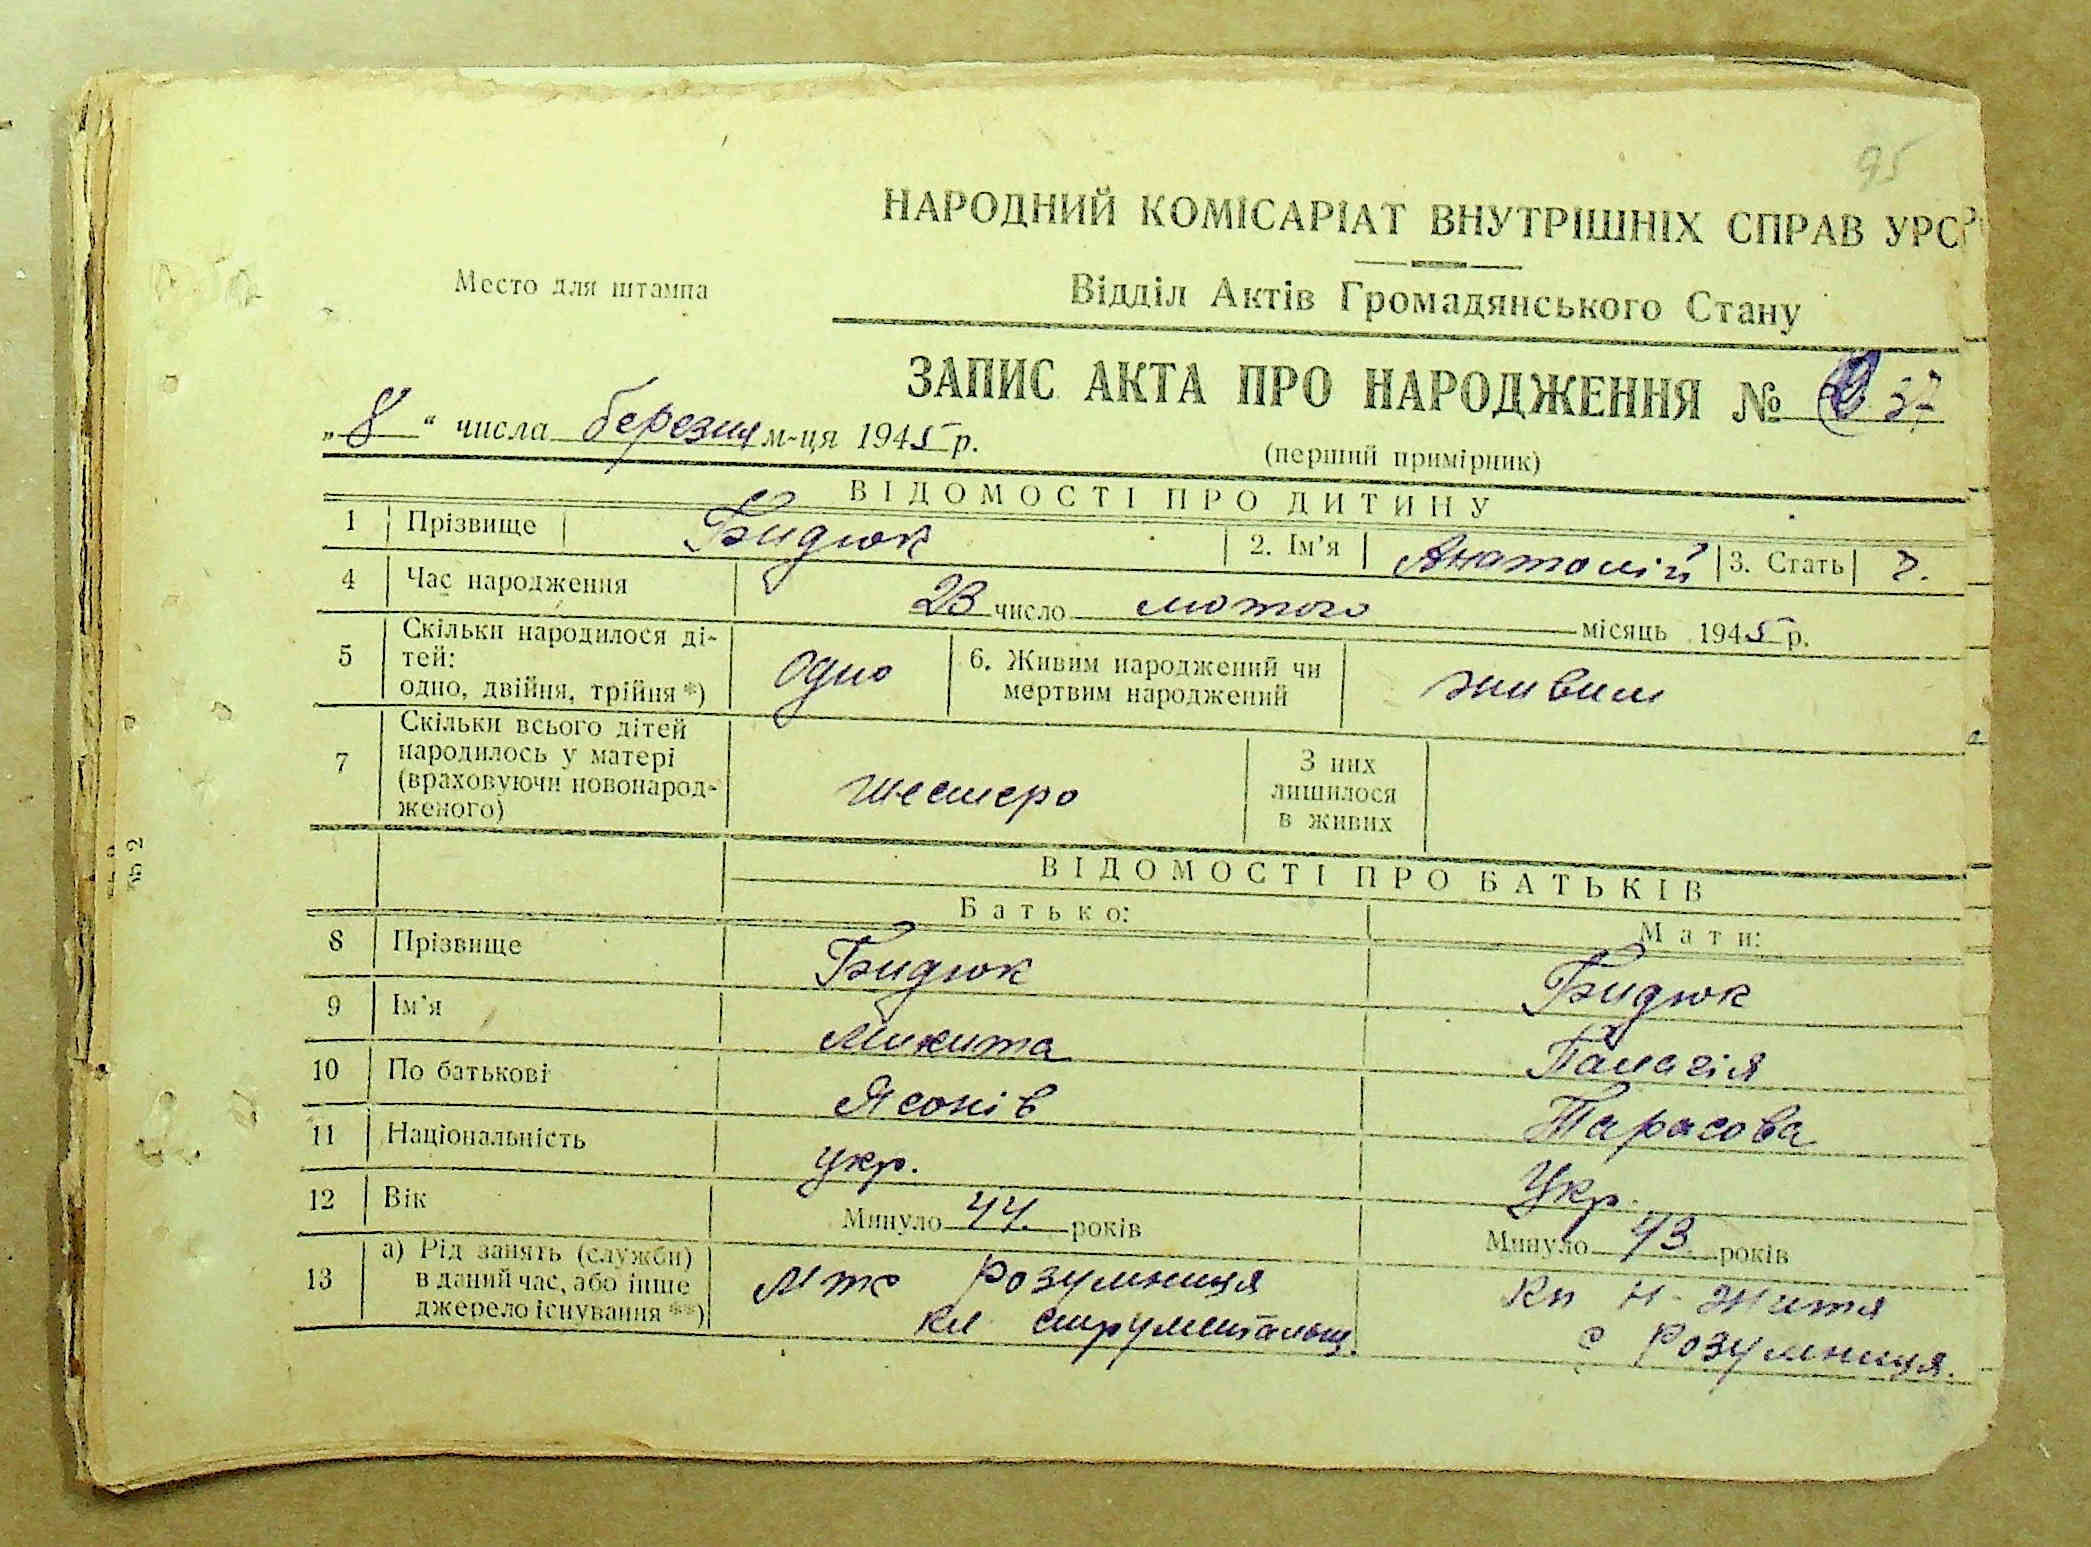 95
НАРОДНИЙ КОМІСАРІАТ ВНУТРІШНІХ СПРАВ УРСР
Место для штампа
Відділ Актів Громадянського Стану
ЗАПИС АКТА ПРО НАРОДЖЕННЯ № 37
„8“ числа березня м-ця 1945 р.
(перший примірник)
ВІДОМОСТІ ПРО ДИТИНУ
1 Прізвище Бидюк 2. Ім’я Анатолій 3. Стать ч.
4 Час народження 23 число лютого місяць 1945 р.
5 Скільки народилося ді-
тей:
одно, двійня, трійня*) одно 6. Живим народжений чи
мертвим народжений живим
7 Скільки всього дітей
народилось у матері
(враховуючи новонарод-
женого) шестеро З них
лишилося
в живих
ВІДОМОСТІ ПРО БАТЬКІВ
Батько: Мати:
8 Прізвище Бидюк Бидюк
9 Ім’я Микита Палагія
10 По батькові Ясонів Тарасова
11 Національність укр. Укр.
12 Вік Минуло 44 років Минуло 43 років
13 а) Рід занять (служби)
в даний час, або інше
джерело існування**) розумниця
Н-Життя
с Розумниця.